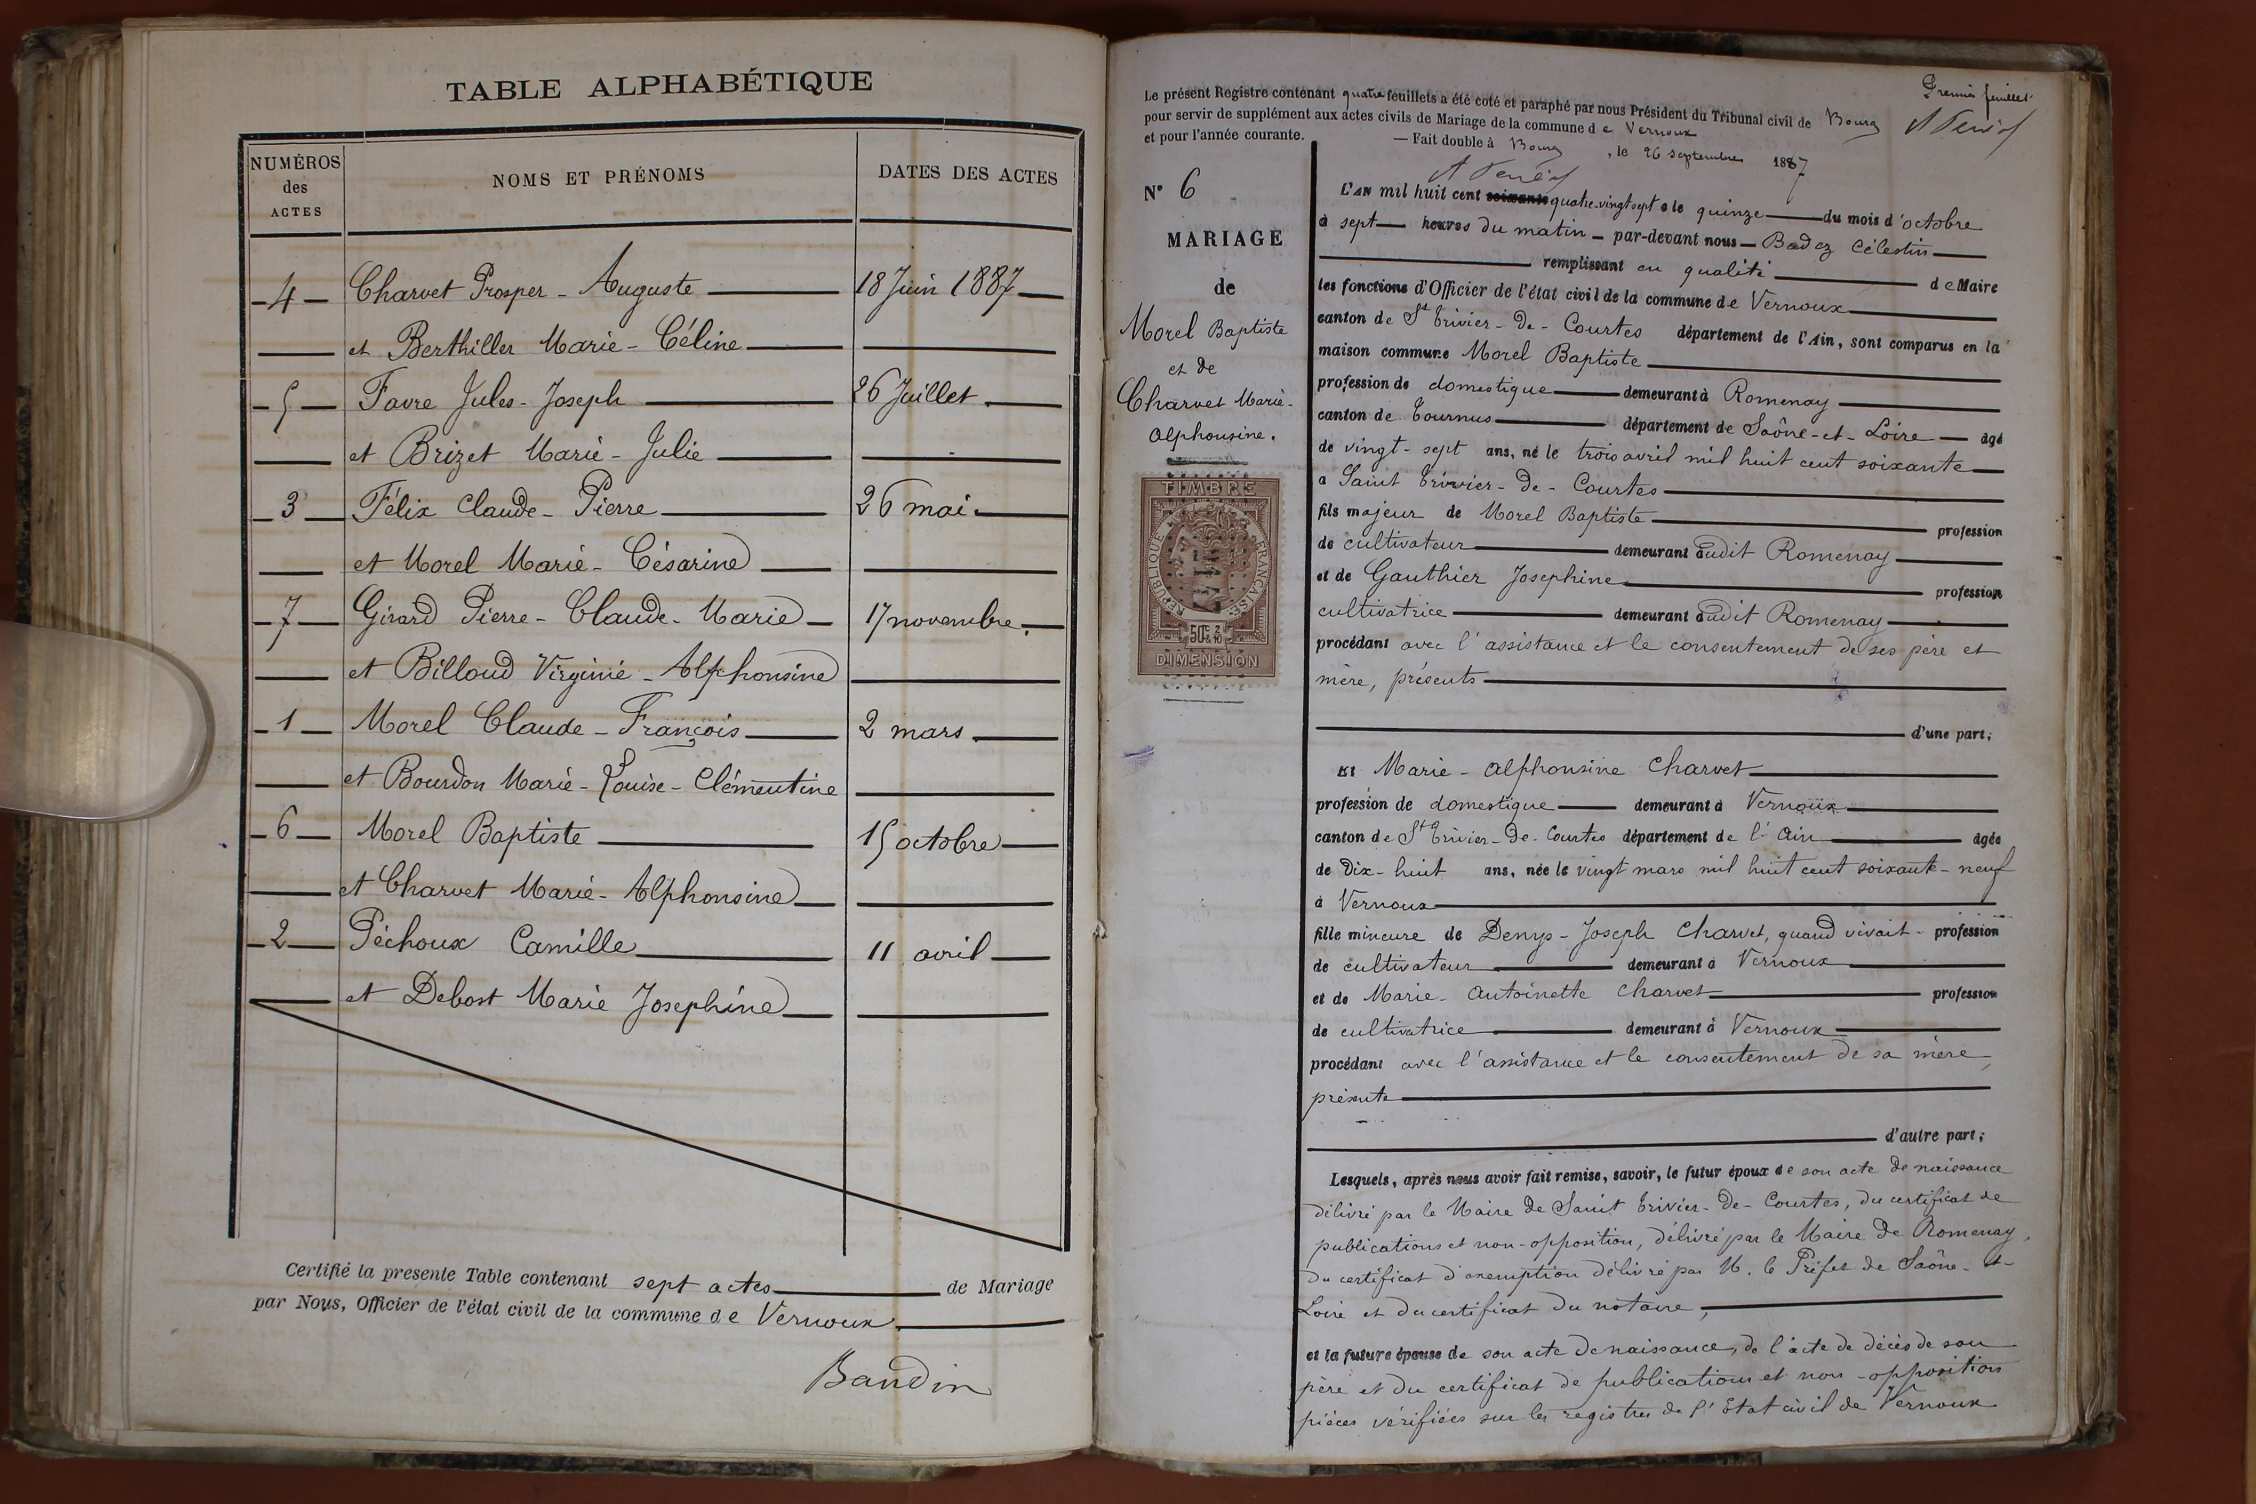 TABLE ALPHABÉTIQUE
NUMÉROS des ACTES
NOMS ET PRÉNOMS
DATES DES ACTES
4 Charvet Prosper - Auguste 18 Juin 1887
et Berthiller Marie - Céline
5 Favre Jules - Joseph 26 Juillet
et Brizet Marie - Julie
3 Félix Claude - Pierre 26 mai
et Morel Marie - Césarine
7 Girard Pierre - Claude - Marie 17 novembre
et Billoud Virginie - Alphonsine
1 Morel Claude - François 2 mars
et Bourdon Marie - Louise - Clémentine
6 Morel Baptiste 15 octobre
et Charvet Marie - Alphonsine
2 Péchoux Camille 11 avril
et Debost Marie Josephine
Certifié la présente Table contenant sept actes de Mariage
par Nous, Officier de l'état civil de la commune de Vernoux
Bandin
Premier feuillet
Le présent Registre contenant quatre feuillets a été coté et paraphé par nous Président du Tribunal civil de Bourg
pour servir de supplément aux actes civils de Mariage de la commune de Vernoux
et pour l'année courante. — Fait double à Bourg, le 26 septembre 1887
N° 6
MARIAGE
de
Morel Baptiste
et de
Charvet Marie-
Alphonsine.
TIMBRE
RÉPUBLIQUE FRANÇAISE
50c 2/10
DIMENSION
L'an mil huit cent soixante quatre-vingt sept le quinze du mois d'octobre
à sept heures du matin - par-devant nous - Badez Célestin
remplissant en qualité de Maire
les fonctions d'Officier de l'état civil de la commune de Vernoux
canton de St Trivier - de - Courtes département de l'Ain, sont comparus en la
maison commune Morel Baptiste
profession de domestique demeurant à Romenay
canton de Tournus département de Saône - et - Loire âgé
de vingt - sept ans, né le trois avril mil huit cent soixante
à Saint Trivier - de - Courtes
fils majeur de Morel Baptiste profession
de cultivateur demeurant audit Romenay
et de Gauthier Josephine profession
cultivatrice demeurant audit Romenay
procédant avec l'assistance et le consentement de ses père et
mère, présents
d'une part;
Et Marie - Alphonsine Charvet
profession de domestique demeurant à Vernoux
canton de St Trivier - de - Courtes département de l'Ain âgée
de dix - huit ans, née le vingt mars mil huit cent soixante - neuf
à Vernoux
fille mineure de Denys - Joseph Charvet, quand vivait - profession
de cultivateur demeurant à Vernoux
et de Marie - Antoinette Charvet profession
de cultivatrice demeurant à Vernoux
procédant avec l'assistance et le consentement de sa mère,
présente
d'autre part;
Lesquels, après nous avoir fait remise, savoir, le futur époux de son acte de naissance
délivré par le Maire de Saint Trivier - de - Courtes, du certificat de
publications et non - opposition, délivré par le Maire de Romenay,
du certificat d'exemption délivré par M. le Préfet de Saône - et -
Loire et du certificat du notaire,
et la future épouse de son acte de naissance, de l'acte de décès de son
père et du certificat de publications et non - opposition
pièces vérifiées sur les registres de l'Etat civil de Vernoux